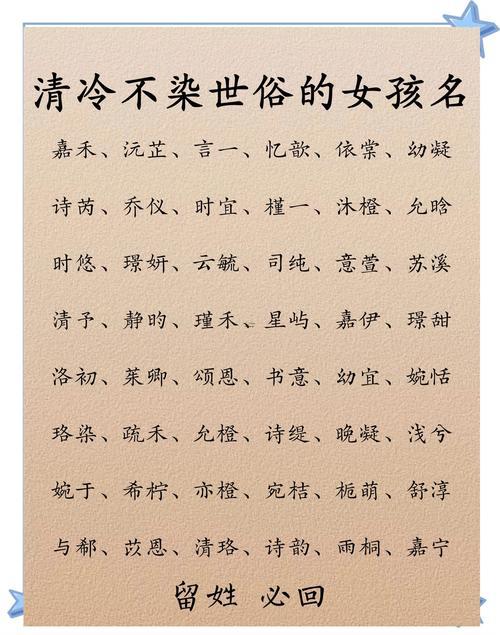 清冷不染世俗的女孩名
嘉禾、沅芷、言一、忆歆、依棠、幼凝
诗芮、乔仪、时宜、槿一、沐橙、允晗
时悠、璟妍、云毓、司纯、意萱、苏溪
清予、静昀、瑾禾、星屿、嘉伊、璟甜
洛初、茱卿、颂恩、书意、幼宜、婉恬
珞染、疏禾、允橙、诗缇、晚凝、浅兮
婉于、希柠、亦橙、宛桔、栀萌、舒淳
与郗、苡恩、清珞、诗韵、雨桐、嘉宁
留姓 必回